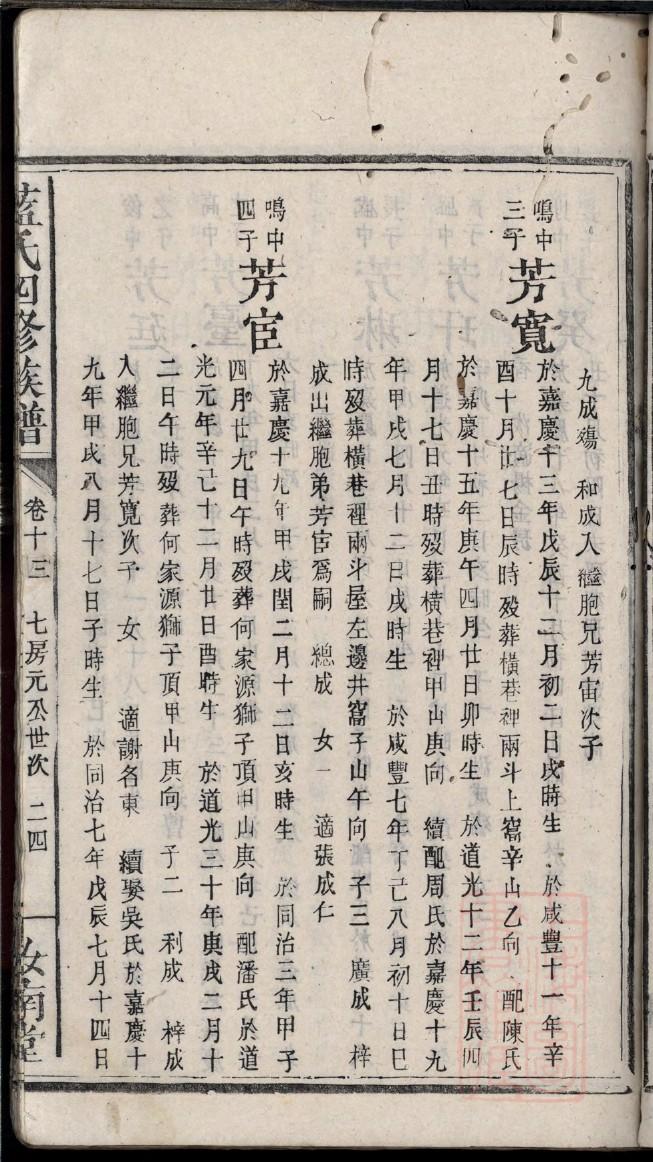 九成殤　和成入繼胞兄芳宙次子
鳴中三子　芳寬
於嘉慶十三年戊辰十二月初二日戌時生　於咸豐十一年辛
酉十月廿七日辰時歿葬橫巷裡兩斗上窩辛山乙向　配陳氏
於嘉慶十五年庚午四月廿日卯時生　於道光十二年壬辰四
月十七日丑時歿葬橫巷裡甲山庚向　續配周氏於嘉慶十九
年甲戌七月十二日戌時生　於咸豐七年丁巳八月初十日巳
時歿葬橫巷裡兩斗屋左邊井窩子山午向　子三　廣成　梓
成出繼胞弟芳宦爲嗣　總成　女一　適張成仁
鳴中四子　芳宦
於嘉慶十九年甲戌閏二月十二日亥時生　於同治三年甲子
四月廿九日午時歿葬何家源獅子頂甲山庚向　配潘氏於道
光元年辛巳十二月廿日酉時生　於道光三十年庚戌二月十
二日午時歿葬何家源獅子頂甲山庚向　子二　利成　梓成
入繼胞兄芳寬次子　女一　適謝名東　續娶吳氏於嘉慶十
九年甲戌八月十七日子時生　於同治七年戊辰七月十四日
藍氏四修族譜　卷十三　七房元公世次　二四　汝南堂